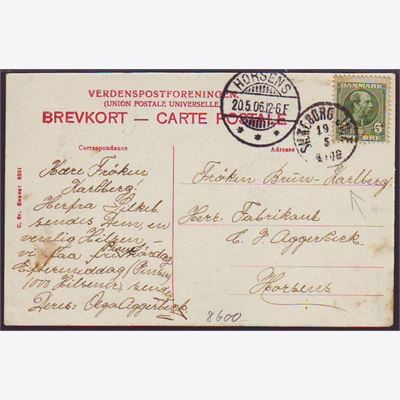 VERDENSPOSTFORENINGEN.
(UNION POSTALE UNIVERSELLE.)
BREVKORT — CARTE POSTALE
HORSENS
20.5.06.12-6F
DANMARK
5
ØRE
SILKEBORG
19
5
Correspondance
Adresse
C. St. Eneret 2001
Kære Frøken
Karlberg!
Herfra Silkeb
sendes Dem en
venlig Hilsen
vi saa
Eftermiddag
1000 Hilsener sender
Deres Aggerbeck.
Frøken Brün-Karlberg
Herr. Fabrikant
C. J. Aggerbeck
Horsens
8600